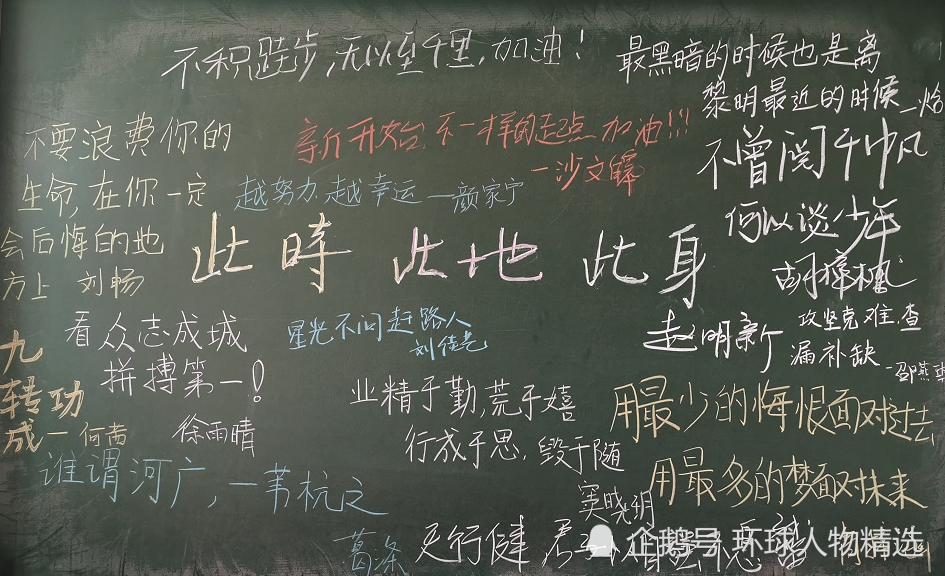 不积跬步,无以至千里,加油!
最黑暗的时候也是离
黎明最近的时候
不要浪费你的
生命,在你一定
会后悔的地
方上 刘畅
新开始,不一样的起点 加油!!!
越努力,越幸运 —颜家宁
不曾阅千帆
何以谈少年
此時 此地 此身
看众志成城
拼搏第一!
徐雨晴
星光不问赶路人
刘佳
赵明新
攻坚克难,查
漏补缺
九
转功
成一何茜
业精于勤,荒于嬉
行成于思,毁于随
窦晓
用最少的悔恨面对过去
用最多的梦面对未来
谁谓河广,一苇杭之
葛条
天行健,君
企鹅号 环球人物精选